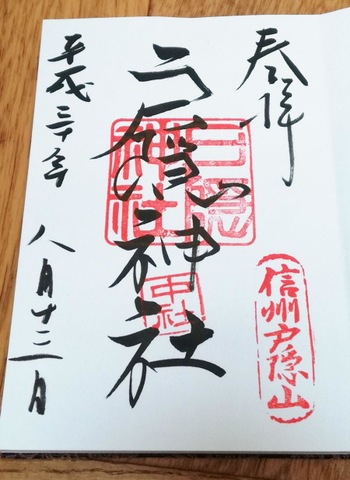 奉拝
信州戸隠山
戸隠神社
戸隠神社
中社
平成三十年 八月十三日